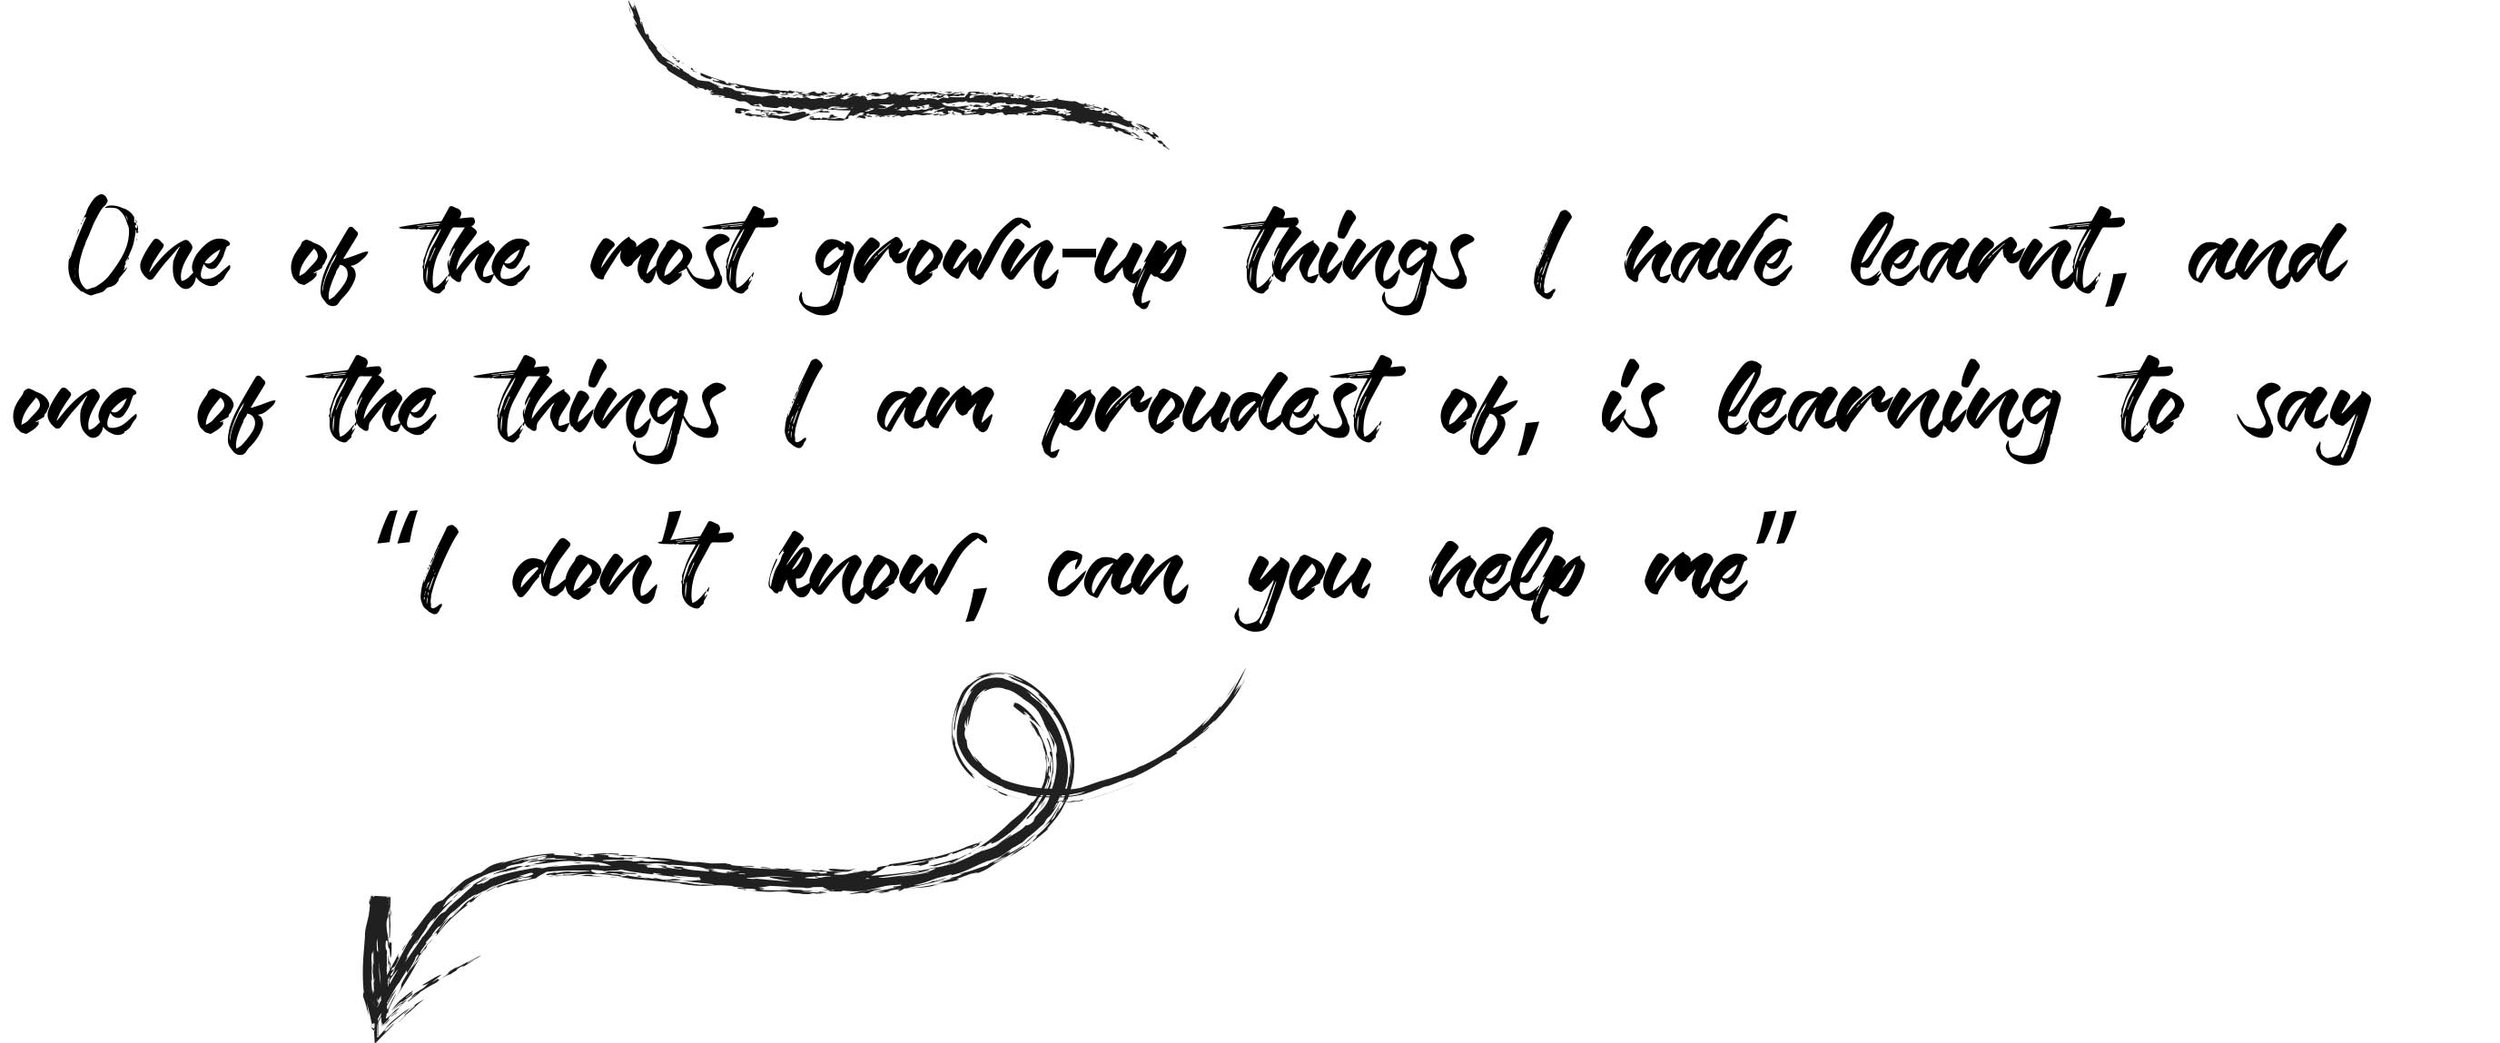 One of the most grown-up things I have learnt, and
one of the things I am proudest of, is learning to say
"I don't know, can you help me"